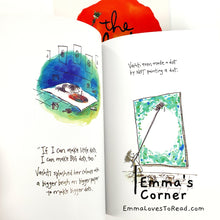 the
"If I can make little dots,
I can make BIG dots, too."
Vashti splashed her colors with
a bigger brush on bigger paper
to make bigger dots.
Vashti even made a dot
by NOT painting a dot.
Emma's
Corner
EmmaLovesToRead.com